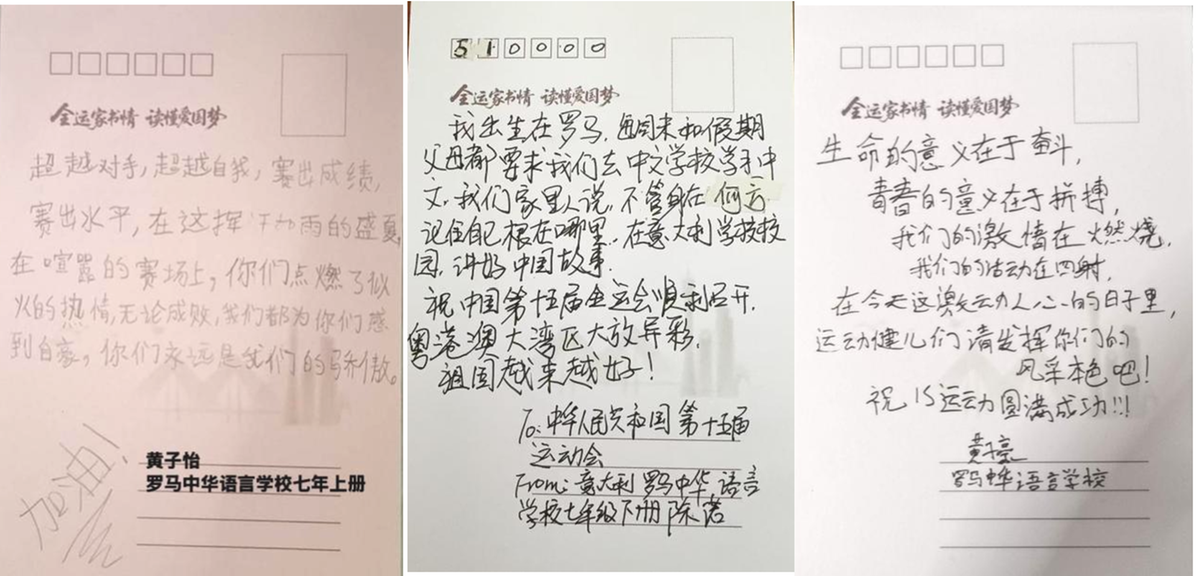 全运家书情 读懂爱国梦
超越对手,超越自我,赛出成绩,
赛出水平,在这挥汗如雨的盛夏,
在喧嚣的赛场上,你们点燃了似
火的热情,无论成败,我们都为你们感
到自豪,你们永远是我们的骄傲。
加油!
黄子怡
罗马中华语言学校七年上册
510000
全运家书情 读懂爱国梦
我出生在罗马,每周末和假期
父母都要求我们去中文学校学习中
文.我们家里人说,不管身在何方
记住自己根在哪里.在意大利学校校
园,讲好中国故事.
祝中国第十五届全运会顺利召开,
粤港澳大湾区大放异彩,
祖国越来越好!
To:中华人民共和国第十五届
运动会
From:意大利罗马中华语言
学校七年级下册陈诺
全运家书情 读懂爱国梦
生命的意义在于奋斗,
青春的意义在于拼搏,
我们的激情在燃烧,
我们的活动在四射.
在今天这激动人心的日子里,
运动健儿们请发挥你们的
风采本色吧!
祝15运动圆满成功!!!
罗马中华语言学校